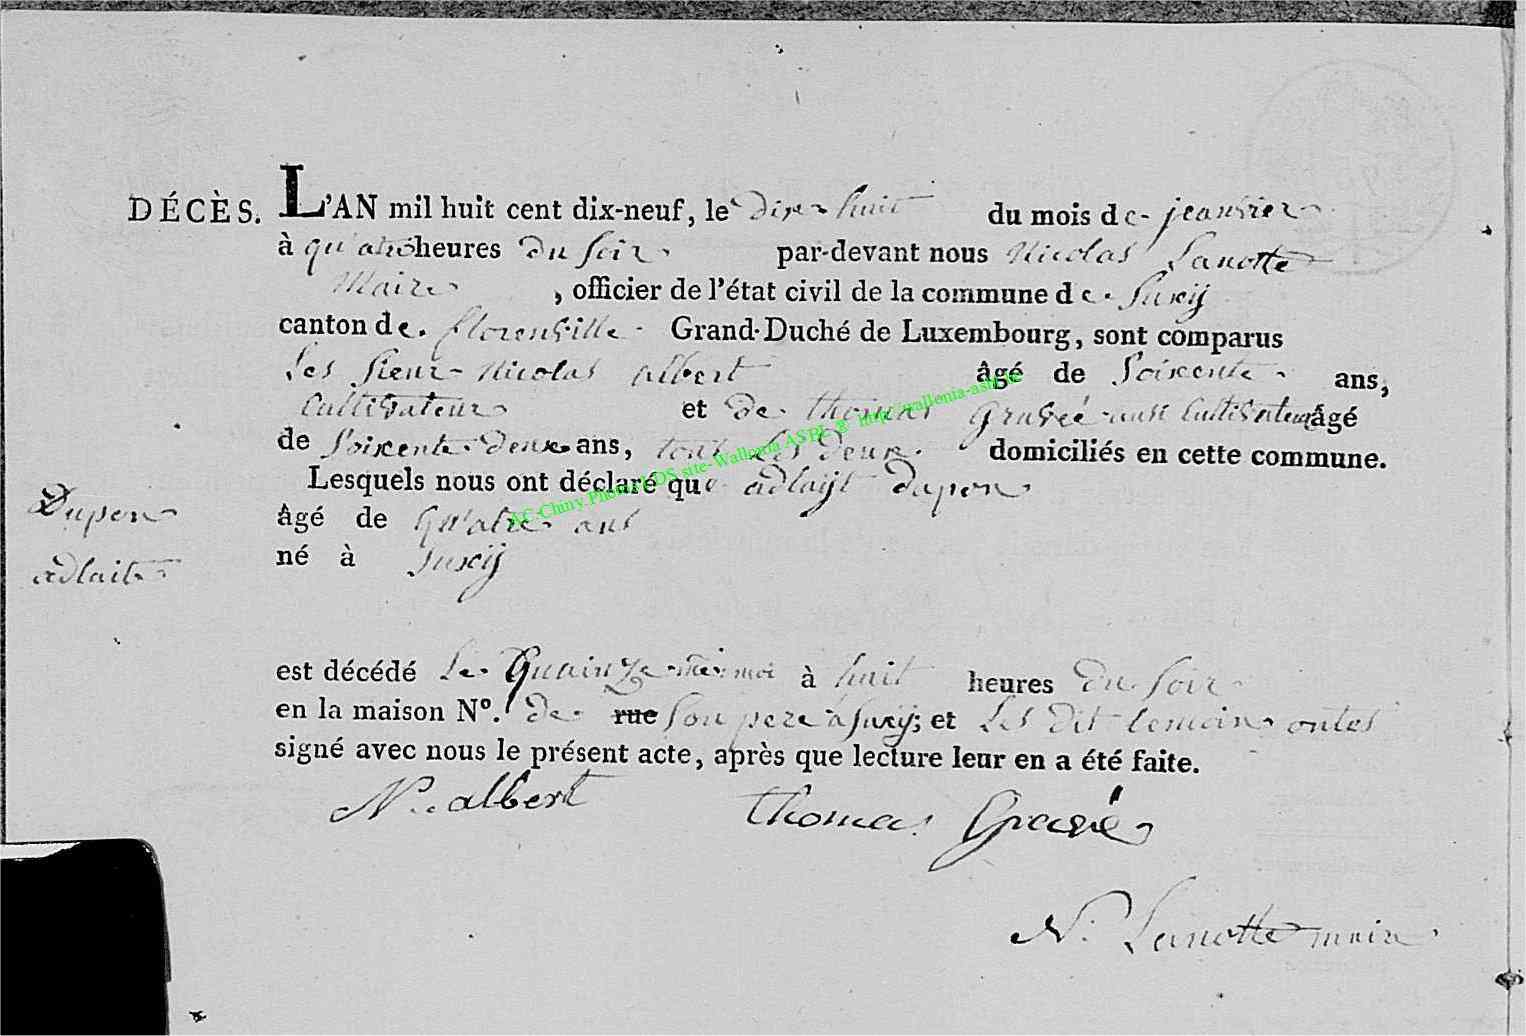 DÉCÈS. L'AN mil huit cent dix-neuf, le dixe huit du mois de jeanvier
à quatre heures du soir par-devant nous Nicolas Lanotte
Maire , officier de l'état civil de la commune de Suxÿ
canton de florenville Grand-Duché de Luxembourg, sont comparus
Les Sieur Nicolas albert âgé de Soixente ans,
Cultivateur et de thomas Gravée ausi Cultivateur âgé
de Soixente deux ans, tout les deux domiciliés en cette commune.
Lesquels nous ont déclaré que adlaÿt dupon
Dupon
adlaite
âgé de Quatre ans
né à Suxÿ
est décédé Le Quainze à huit heures du soir
en la maison Nº. de rue Son pere a Suxÿ; et Les dit temoin ontes
signé avec nous le présent acte, après que lecture leur en a été faite.
N. albert thomas Gravé
N. Lanotte maire
AC-Chiny Photos LDS site-Wallonia ASBL ® http://wallonia-asbl.be